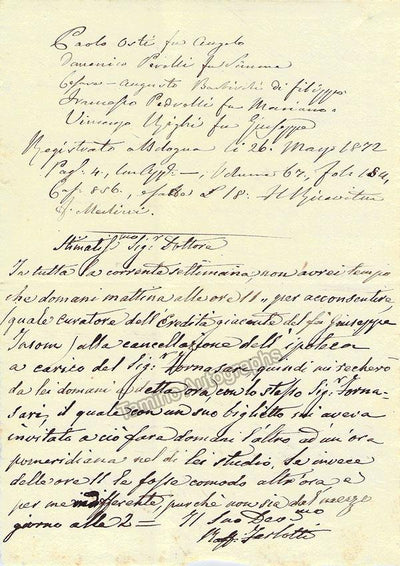 Paolo Osti fu Angelo
Domenico Perelli fu Simone
Cesare-Augusto Barbieri di Filippo
Francesco Pedrelli fu Mariano
Vincenzo Righi fu Giuseppe
Registrato a Bologna li 26. Mag. 1872
Pag. 4, Volume 67. fol. 184,
Cas. 856, Il Ricevitore
Stimatis.mo Sig.r Dottore
In tutta la corrente settimana, non avrei tempo
che domani mattina alle ore 11 per acconsentire
(quale curatore dell'Eredità giacente del fu Giuseppe
alla cancellazione dell'ipoteca
a carico del Sig.r Fornasari, quindi mi recherò
da lei domani a detta ora con lo stesso Sig.r Forna-
sari, il quale con un suo biglietto mi aveva
invitato a ciò fare domani l'altro ad un'ora
pomeridiana nel di lei studio, se invece
delle ore 11 le fosse comodo altr'ora è
per me indifferente, purchè non sia dal mezzo
giorno alle 2 = Il Suo Dev.mo
Tamino Autographs